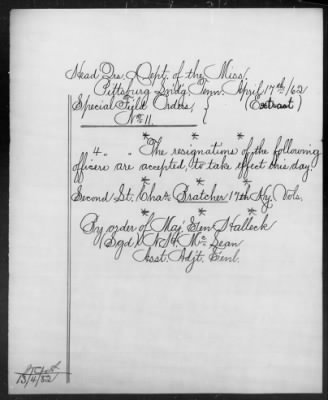 Head Qrs. Dept. of the Miss.
Pittsburg Lndg. Tenn. April 17th/62
Special Field Orders, } (Extract)
No 11.
* * *
4 " " The resignations of the following
officers are accepted, to take effect this day.
* * *
Second Lt. Chas. Bratcher 17th Ky. Vols.
* * *
By order of Maj. Gen Halleck
(Sgd) N. H. Mc Lean
Asst. Adjt. Genl.
13/4/82